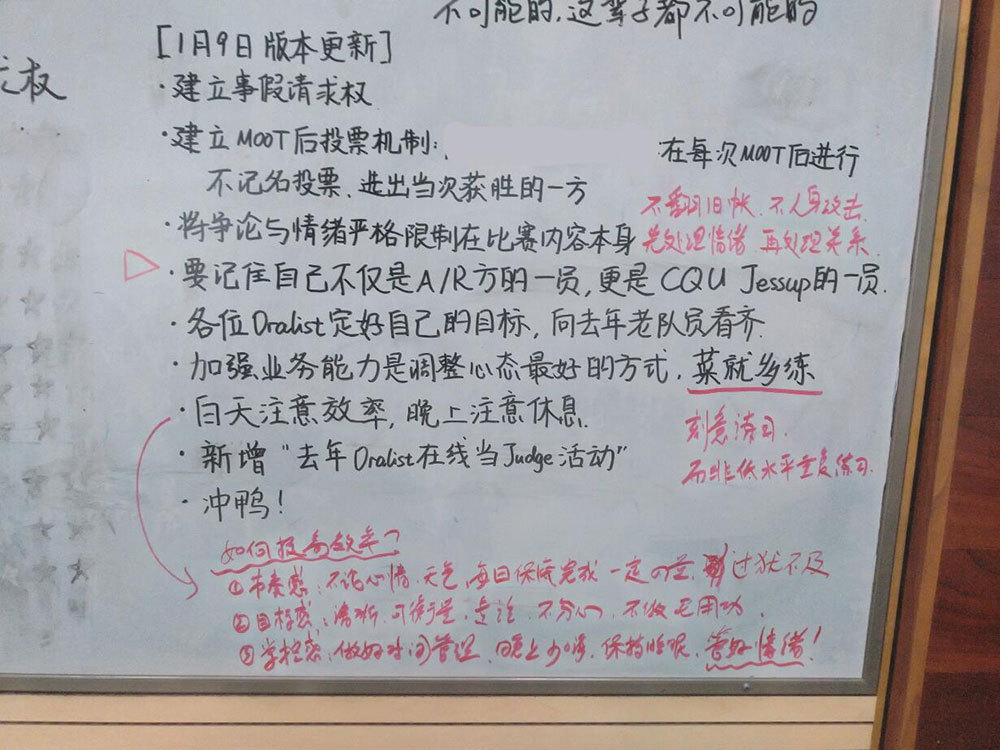 不可能的，这辈子都不可能的
[1月9日版本更新]
权
·建立事假请求权
·建立MOOT后投票机制： 在每次MOOT后进行
不记名投票、进出当次获胜的一方
不翻旧帐、不人身攻击、
·将争论与情绪严格限制在比赛内容本身
先处理情绪 再处理关系.
·要记住自己不仅是A/R方的一员，更是CQU Jessup的一员.
·各位Oralist定好自己的目标，向去年老队员看齐.
·加强业务能力是调整心态最好的方式，菜就多练
·白天注意效率，晚上注意休息.
刻意练习.
·新增“去年Oralist在线当Judge活动”
而非低水平重复练习.
·冲鸭！
如何提高效率？
①节奏感：不论心情、天气，每日保质完成一定的量，过犹不及
②目标感：清晰、可衡量， 不分心、不做无用功.
③掌控感：做好时间管理、晚上少 、保持睡眠、管好情绪！